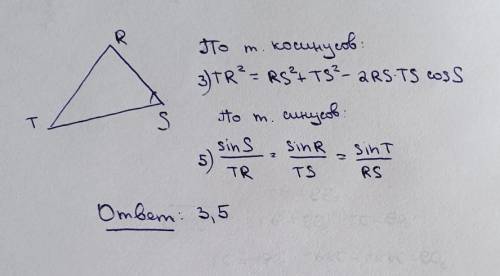 R
По т. косинусов:
3) TR² = RS² + TS² - 2RS·TS cosS
T
S
По т. синусов:
5) sinS/TR = sinR/TS = sinT/RS
Ответ: 3,5